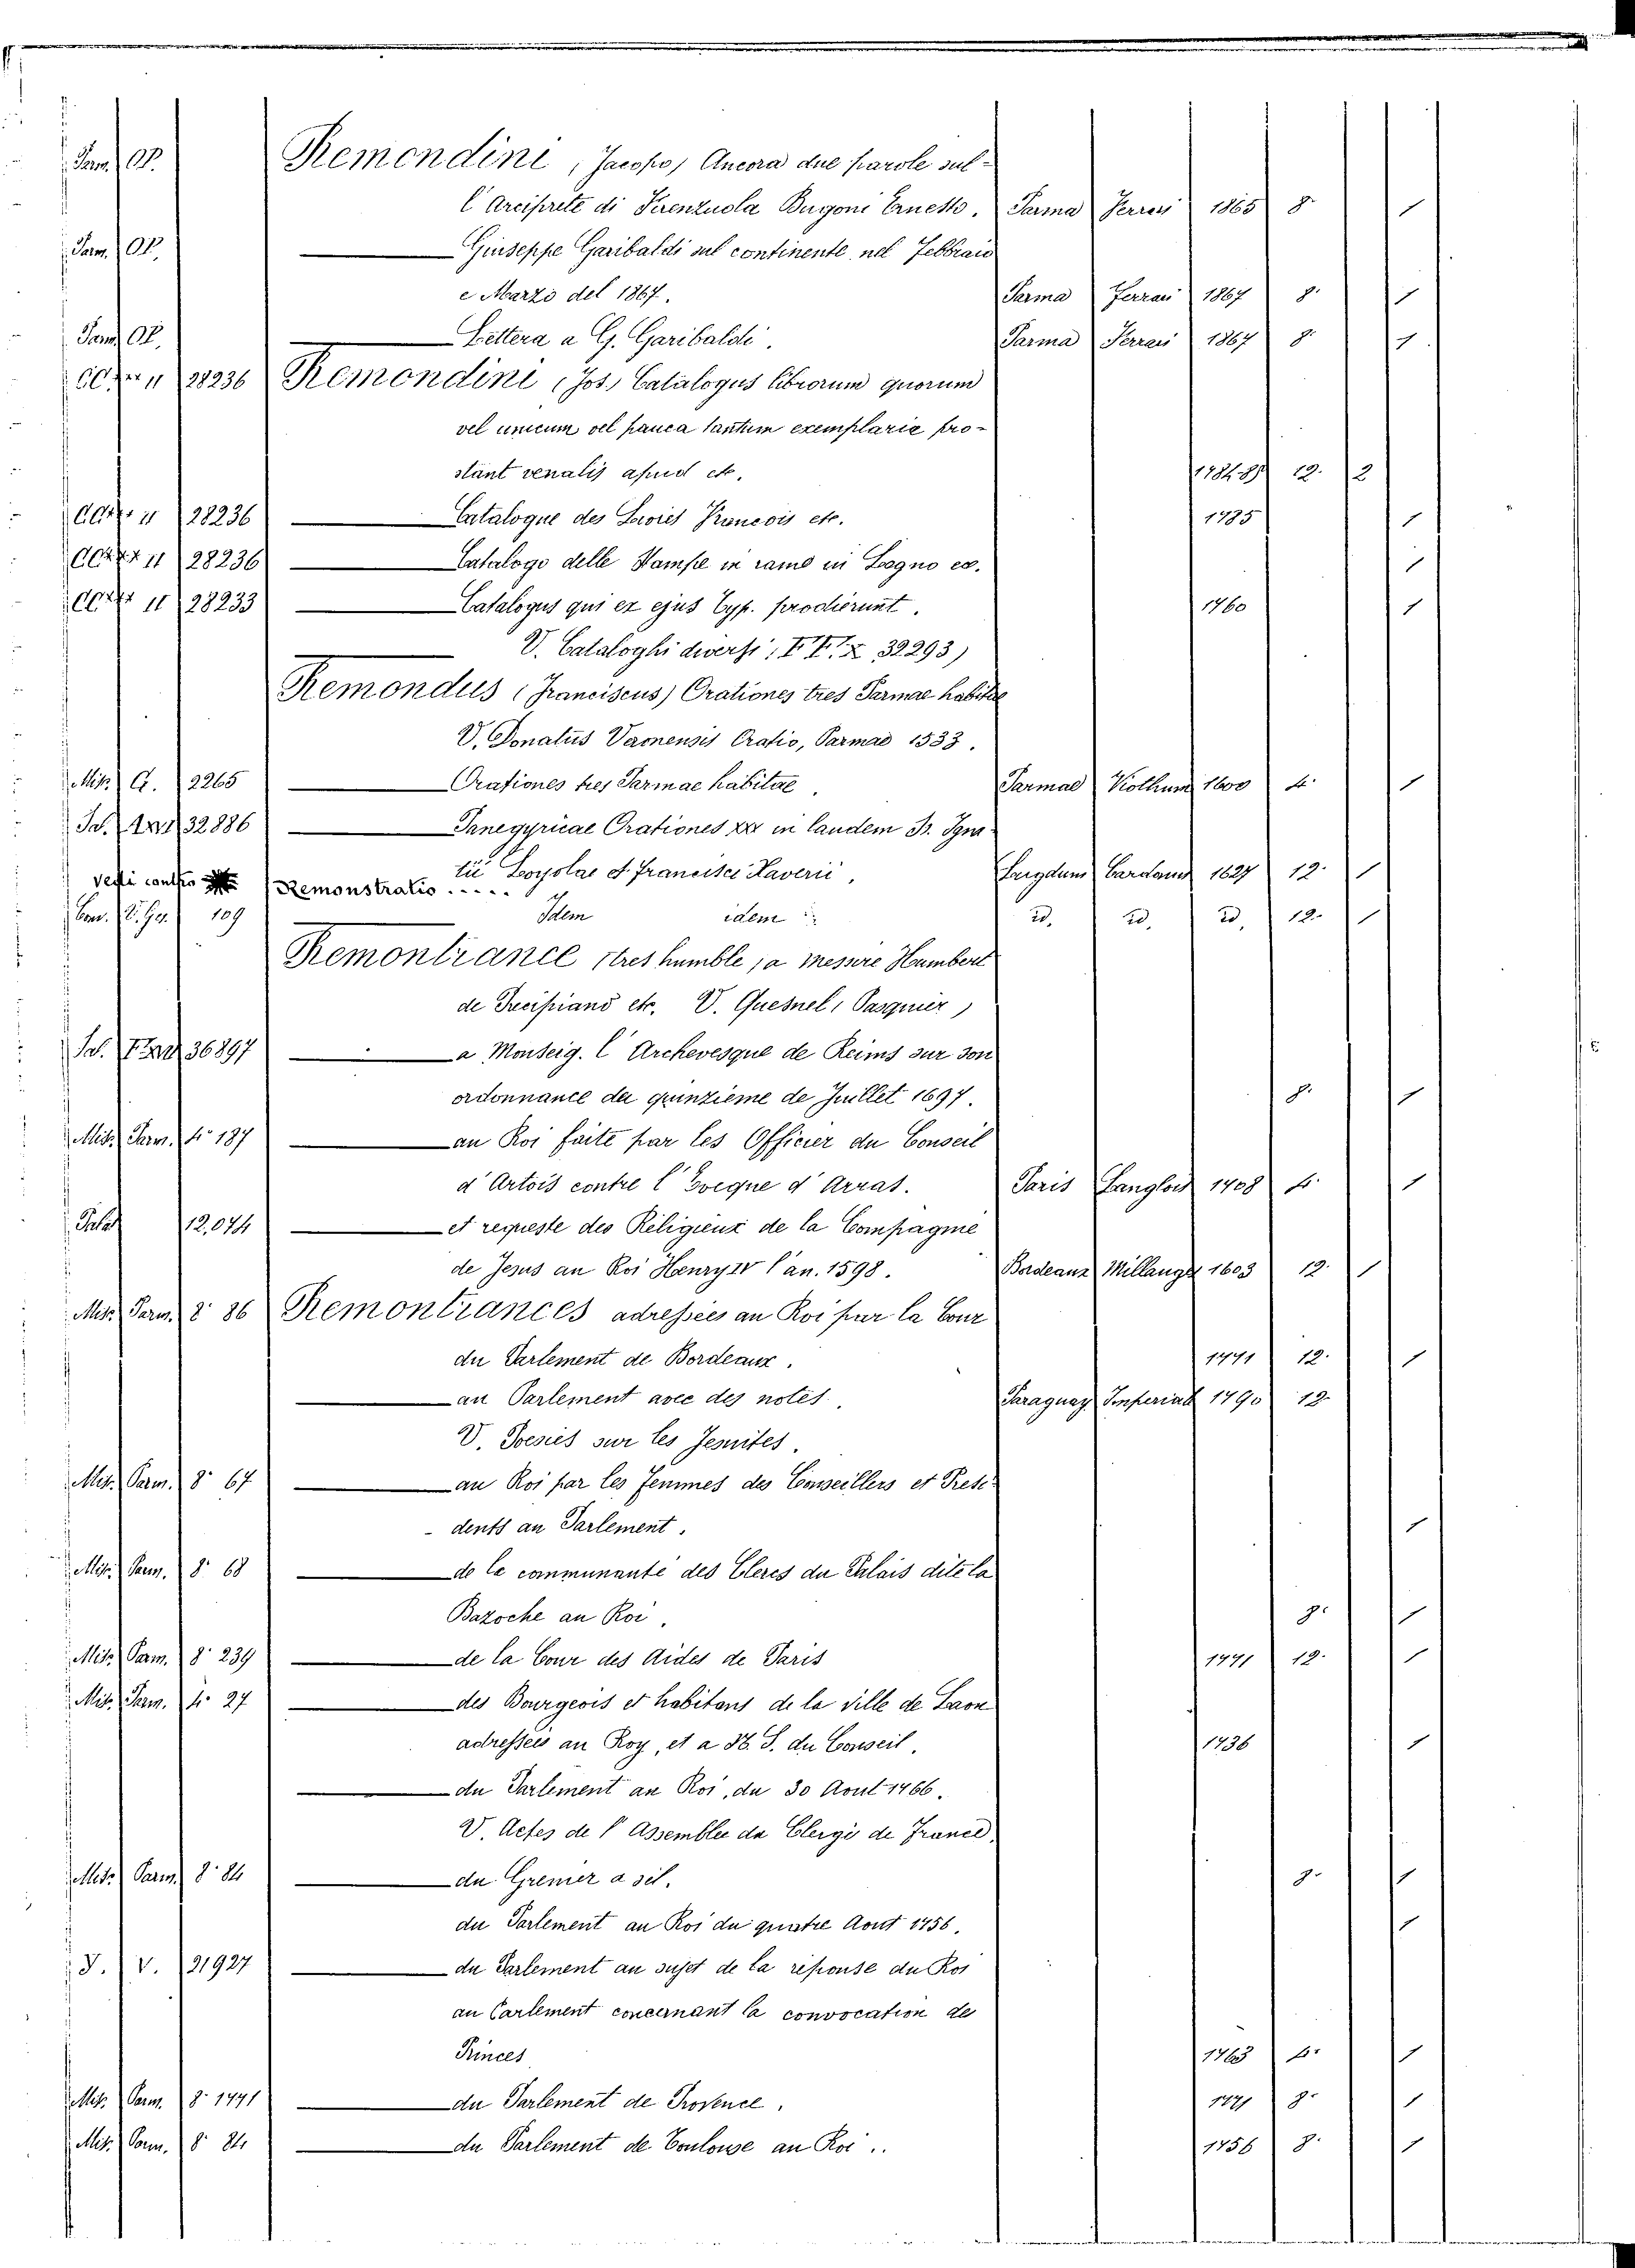 Parm. OP. Remondini, Jacopo, Ancora due parole sul-
l'Arciprete di Firenzuola Bugoni Ernesto. Parma Ferrari 1865 8° 1
Parm. OP. Giuseppe Garibaldi sul continente nel Febbraio
e Marzo del 1867. Parma Ferrari 1867 8° 1
Parm. OP. Lettera a G. Garibaldi. Parma Ferrari 1867 8° 1
28236 Remondini (Jos.) Catalogus librorum quorum
vel unicum vel pauca tantum exemplaria pro-
stant venalis apud etc. 12° 2
28236 Catalogue des Livres Francois etc. 1785 1
28236 Catalogo delle Stampe in rame in Legno ec. 1
28233 Catalogus qui ex ejus Typ. prodierunt. 1760 1
V. Cataloghi diversi, 32293)
Remondus (Franciscus) Orationes tres Parmae habitae
V. Donatus Oratio, Parmae 1533.
Misc. G. 2265 Orationes tres Parmae habitae. Parmae Viothum 1600 4° 1
Sal. 32886 Panegyricae Orationes in laudem St. Igna-
tii Loyolae et Francisci Xaverii, 1627 12° 1
vedi contro Remonstratio.....
109 Idem idem id. id. id. 12° 1
Remontrance (tres humble) a messire Humbert
de Precipiano etc. V. Quesnel, Pasquier)
Sal. 36897 a Monseig. l'Archevesque de Reims sur son
ordonnance du quinzieme de Juillet 1697. 8° 1
Misc. Parm. 4° 187 au Roi faite par les Officier du Conseil
d'Artois contre l'Eveque d'Arras. Paris Langlois 1708 4° 1
Palat. 12,074 et requeste des Religieux de la Compagnie
de Jesus au Roi Henry IV l'an. 1598. Bordeaux Millanges 1603 12° 1
Misc. Parm. 8° 86 Remontrances adressées au Roi par la Cour
du Parlement de Bordeaux. 1771 12° 1
au Parlement avec des notes. Paraguay Imperiale 1790 12°
V. Poesies sur les Jesuites.
Misc. Parm. 8° 67 au Roi par les femmes des Conseillers et Presi-
- dents au Parlement. 1
Misc. Parm. 8° 68 de la communauté des Clercs du Palais dite la
Bazoche au Roi. 8° 1
Misc. Parm. 8° 239 de la Cour des Aides de Paris 1771 12° 1
Misc. Parm. 4° 27 des Bourgeois et habitans de la ville de Laon
adressées au Roy, et a S. du Conseil. 1736 1
du Parlement au Roi, du 30 Aout 1766.
V. Actes de l'Assemblee du Clergé de France.
Misc. Parm. 8° 84 du Grenier a sel. 8° 1
du Parlement au Roi du quatre Aout 1756. 1
V. 21927 du Parlement au sujet de la réponse du Roi
au Parlement concernant la convocation des
Princes 1763 1
Misc. Parm. 8° 1771 du Parlement de Provence. 1771 8° 1
Misc. Parm. 8° 84 du Parlement de Toulouse au Roi.. 1756 8° 1